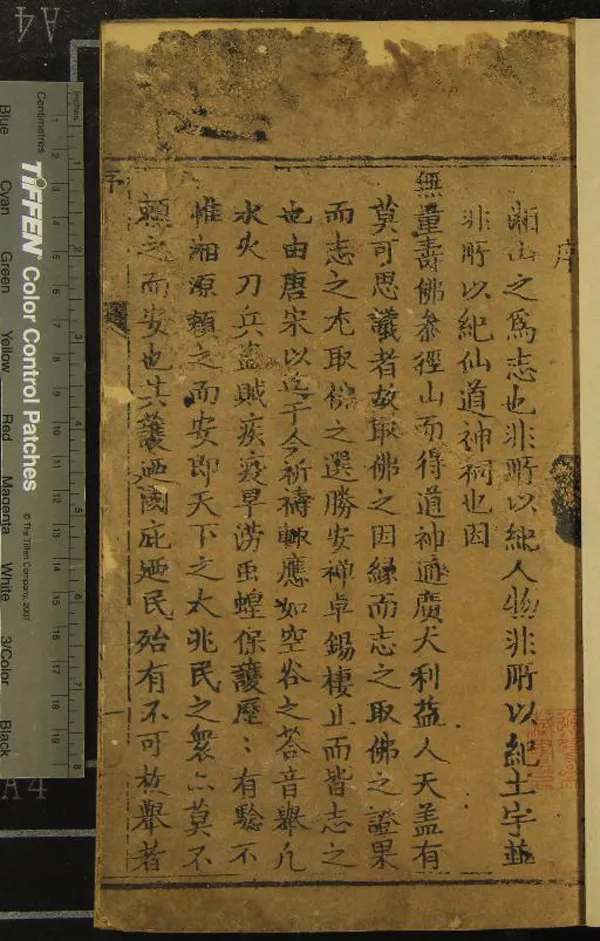 序
湘山之爲志也非所以紀人物非所以紀土宇並
非所以紀仙道神祠也因
無量壽佛叅徑山而得道神通廣大利益人天盖有
莫可思議者故取佛之因緣而志之取佛之證果
而志之尤取佛之選勝安禪卓錫棲止而皆志之
也由唐宋以迄于今祈禱輒應如空谷之荅音舉凡
水火刀兵盗賊疾疫旱澇虫蝗保護歷〻有驗不
惟湘源賴之而安即天下之大兆民之衆亦莫不
賴之而安也其護廼國庇廼民殆有不可枚舉者
序
一
A4
A4
Inches
Centimetres
TIFFEN Color Control Patches
© The Tiffen Company, 2007
Blue
Cyan
Green
Yellow
Red
Magenta
White
3/Color
Black
1 2 3 4 5 6 7 8
1 2 3 4 5 6 7 8 9 10 11 12 13 14 15 16 17 18 19